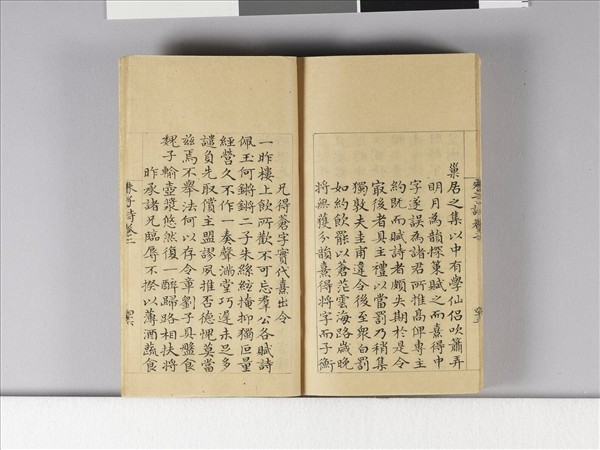 巢居之集以中有學仙侶吹簫弄
明月為韻探策賦之而熹得中
字遂誤為諸君所推高俾專主
約既而賦詩者頗失期於是令
最後者具主禮以當罰乃稍集
獨敦夫圭甫違令後至眾白罰
如約飲罷以蒼茫雲海路歲晚
將無獲分韻熹得將字而子衡
兄得蒼字實代熹出令
一昨樓上飲所歡不可忘羣公各賦詩
佩玉何鏘鏘二子朱絲絃掩抑獨叵量
經營久不作一奏聲滿堂巧遲未足多
譴負先取償主盟謬夙推否德愧莫當
茲焉不舉法何以存令章劉子具盤食
魏子輸壺漿悠然復一醉歸路相扶將
昨承諸兄臨辱不揆以薄酒蔬食